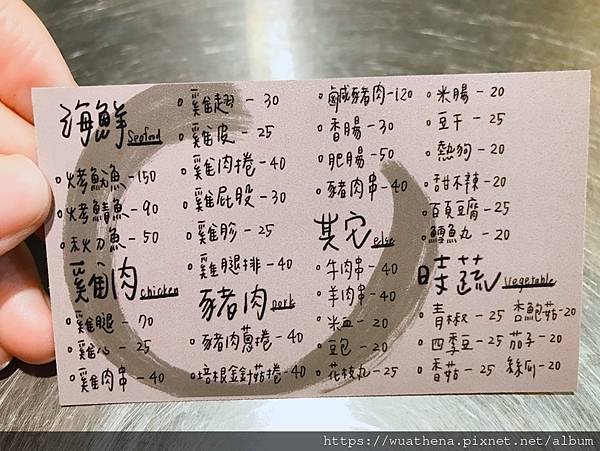 海鮮 Seafood
烤魷魚-150
烤鯖魚-90
秋刀魚-50
雞肉 chicken
雞腿-70
雞心-25
雞肉串-40
雞翅-30
雞皮-25
雞肉捲-40
雞屁股-30
雞胗-25
雞腿排-40
豬肉 pork
豬肉蔥捲-40
培根金針菇捲-40
鹹豬肉-120
香腸-30
肥腸-50
豬肉串-40
其它 else
牛肉串-40
羊肉串-40
米血-20
豆包-20
花枝丸-25
米腸-20
豆干-25
熱狗-20
甜不辣-20
百頁豆腐-25
鱈魚丸-20
時蔬 Vegetable
青椒-25 杏鮑菇-20
四季豆-25 茄子-20
香菇-25 絲瓜-20
https://wuathena.pixnet.net/album